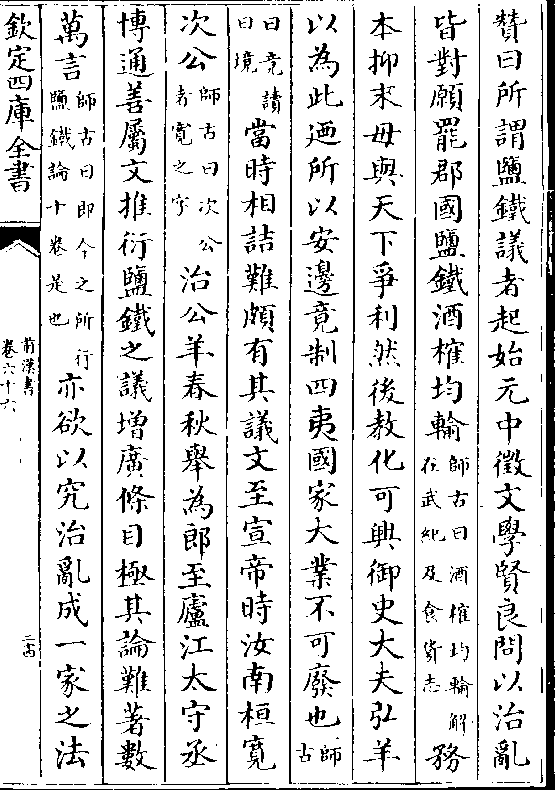 贊曰所謂鹽鐵議者起始元中徵文學賢良問以治亂
皆對願罷郡國鹽鐵酒榷均輸師古曰酒榷均輸解在武紀及食貨志務
本抑末毋與天下爭利然後教化可興御史大夫弘羊
以為此迺所以安邊竟制四夷國家大業不可廢也師古
曰竟讀曰境當時相詰難頗有其議文至宣帝時汝南桓寛
次公師古曰次公者寛之字治公羊春秋舉為郎至廬江太守丞
博通善屬文推衍鹽鐵之議增廣條目極其論難著數
萬言師古曰即今之所行鹽鐵論十卷是也亦欲以究治亂成一家之法
欽定四庫全書
前漢書
卷六十六
三十四